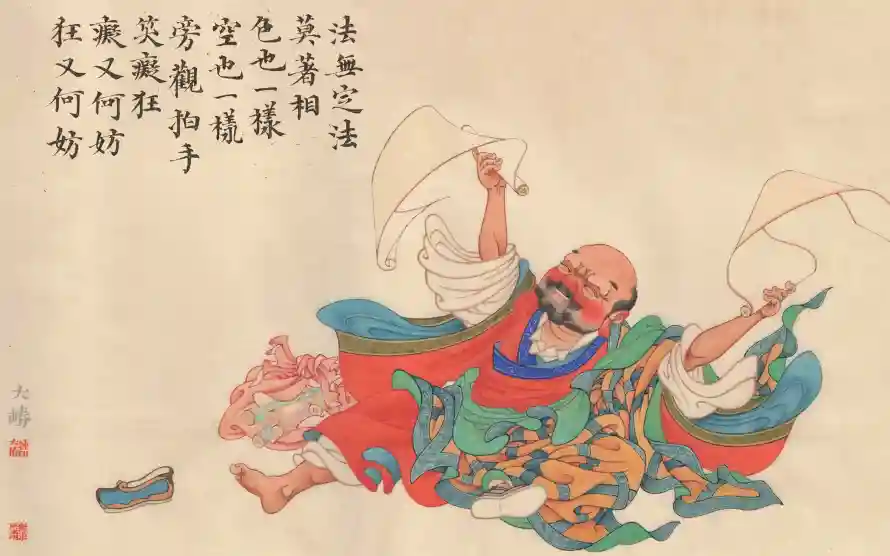 法無定法
莫著相
色也一樣
空也一樣
旁觀拍手
笑癡狂
癡又何妨
狂又何妨